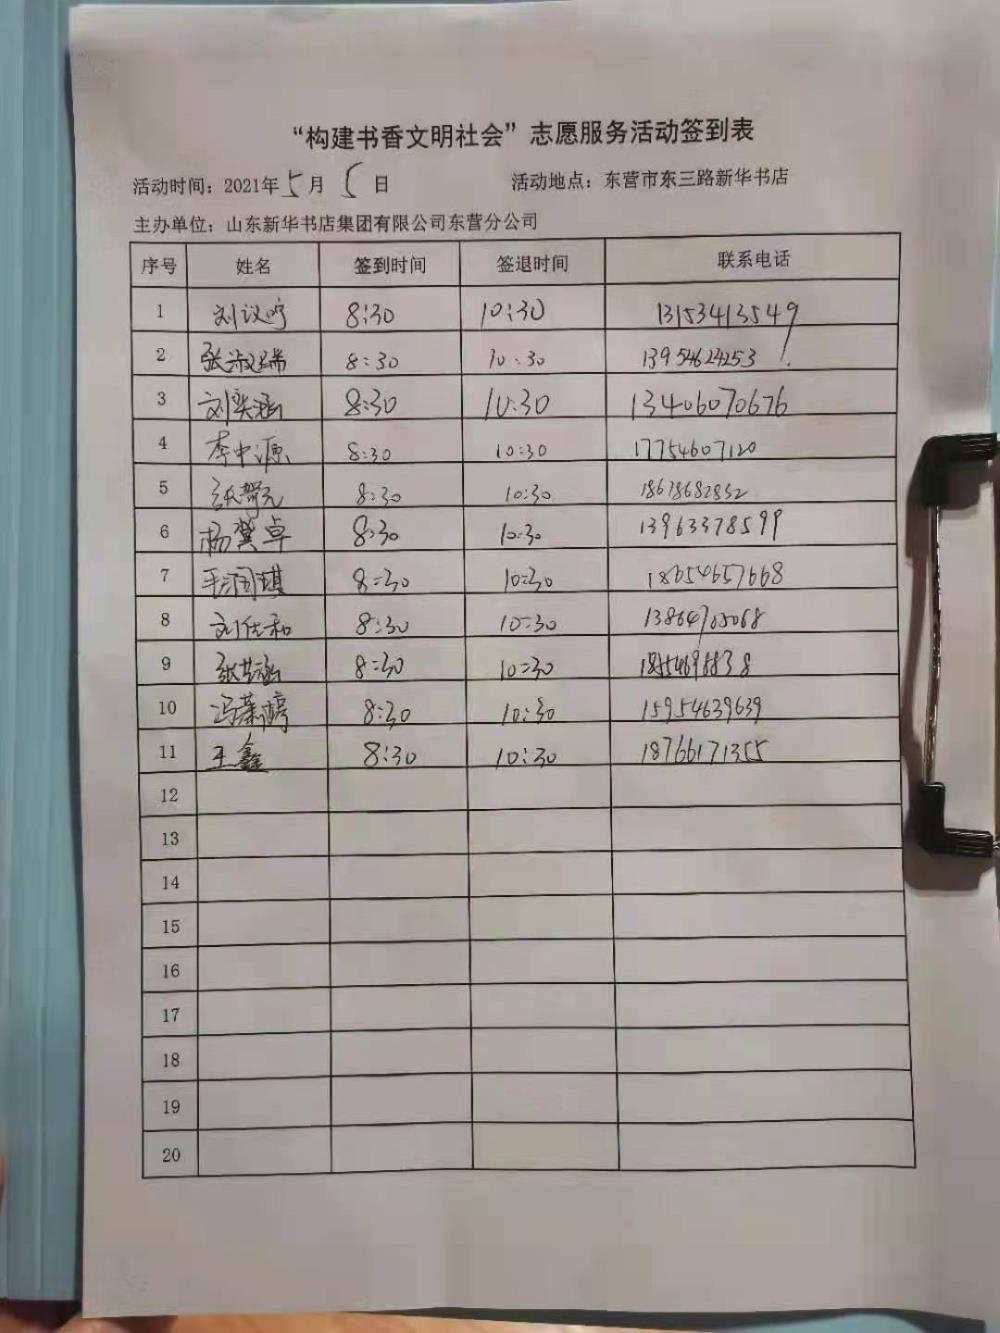 “构建书香文明社会”志愿服务活动签到表
活动时间：2021年5月5日 活动地点：东营市东三路新华书店
主办单位：山东新华书店集团有限公司东营分公司
序号 姓名 签到时间 签退时间 联系电话
1 刘议鸣 8:30 10:30 13153413549
2 张淑瑞 8:30 10:30 13954624253
3 刘奕涵 8:30 10:30 13406070676
4 李中源 8:30 10:30 17754607120
5 8:30 10:30 18678682852
6 杨冀卓 8:30 10:30 13963378599
7 王润琪 8:30 10:30 18654657668
8 刘任和 8:30 10:30
9 8:30 10:30
10 8:30 10:30 15954639639
11 王鑫 8:30 10:30 18766171355
12
13
14
15
16
17
18
19
20